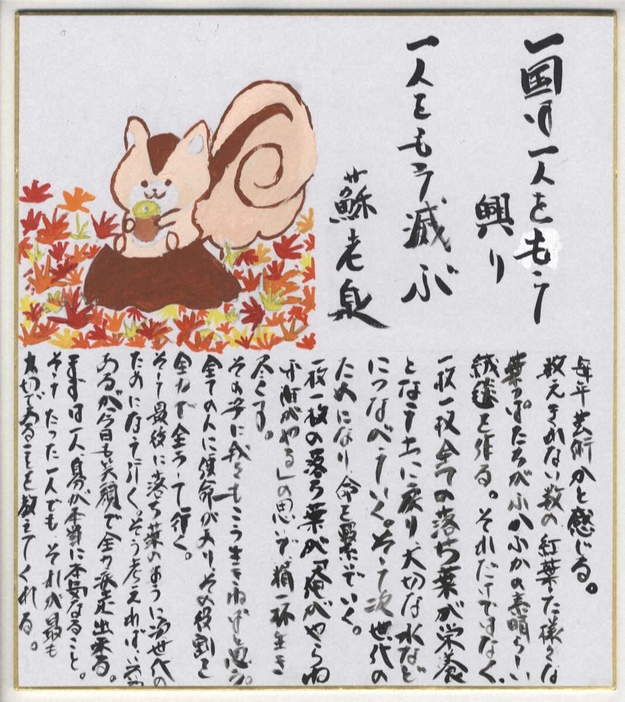 一国は一人をもって
興り
一人をもって滅ぶ
蘇老泉
毎年芸術かと感じる。
数えきれない数の紅葉した様々な
葉っぱたちがふかふかの素晴らしい
絨毯を作る。それだけではなく、
一枚一枚全ての落ち葉が栄養
となって土に戻り大切な水など
につなべていく。そして次世代の
ためになり、命を繋いでいく。
一枚一枚の落ち葉が「俺がやらね
ば誰がやる」の思いで精一杯生き
尽くす。
その姿に我々もこう生きねばと思う。
全ての人に使命が有り、その役割を
全力で全うして行く。
そして最後に落ち葉のように次世代の
ためになって行く。そう考えれば、
あるが今日も笑顔で全力疾走出来る。
まずは一人、自分が本当に本気になること。
そしてたった一人でも、それが最も
大切であることを教えてくれる。